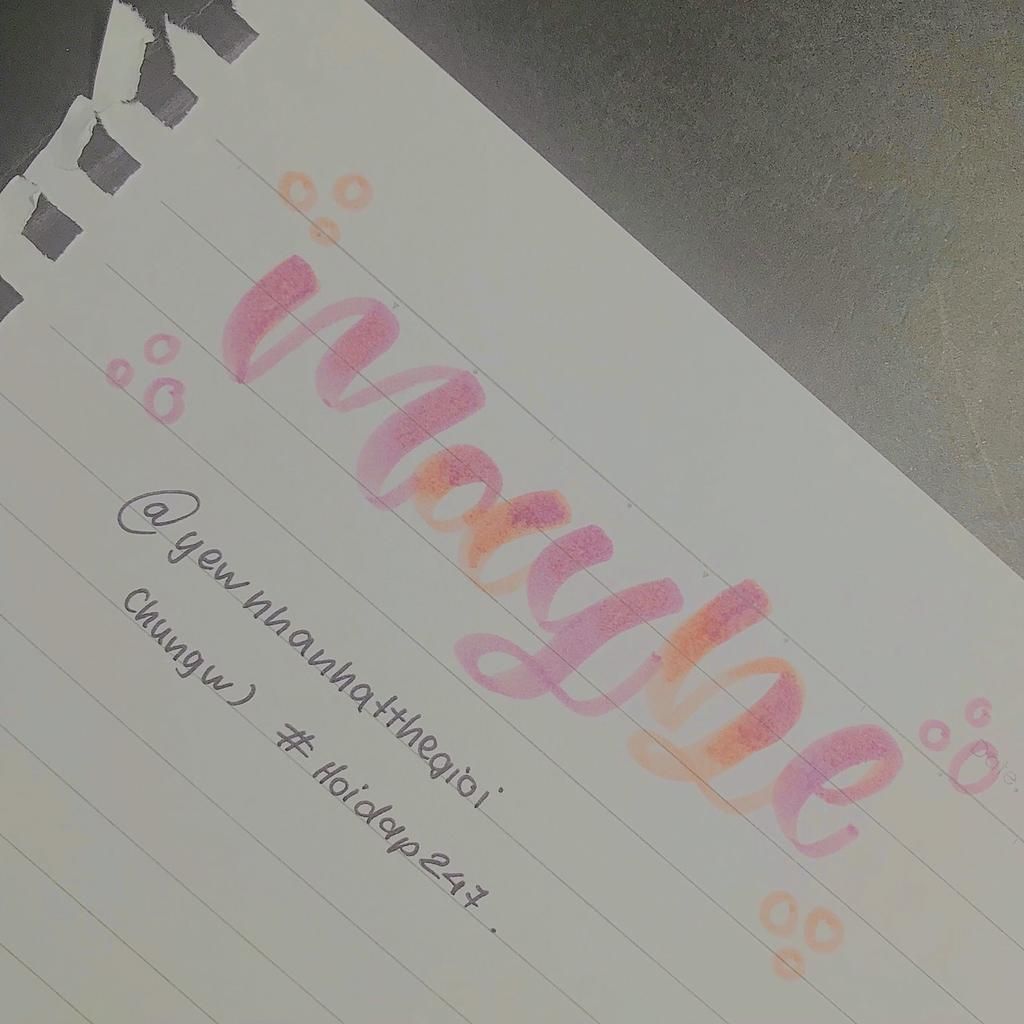 maybe
Date.
@yewnhanhatthegioi
Chungw)
#Hoidap247.